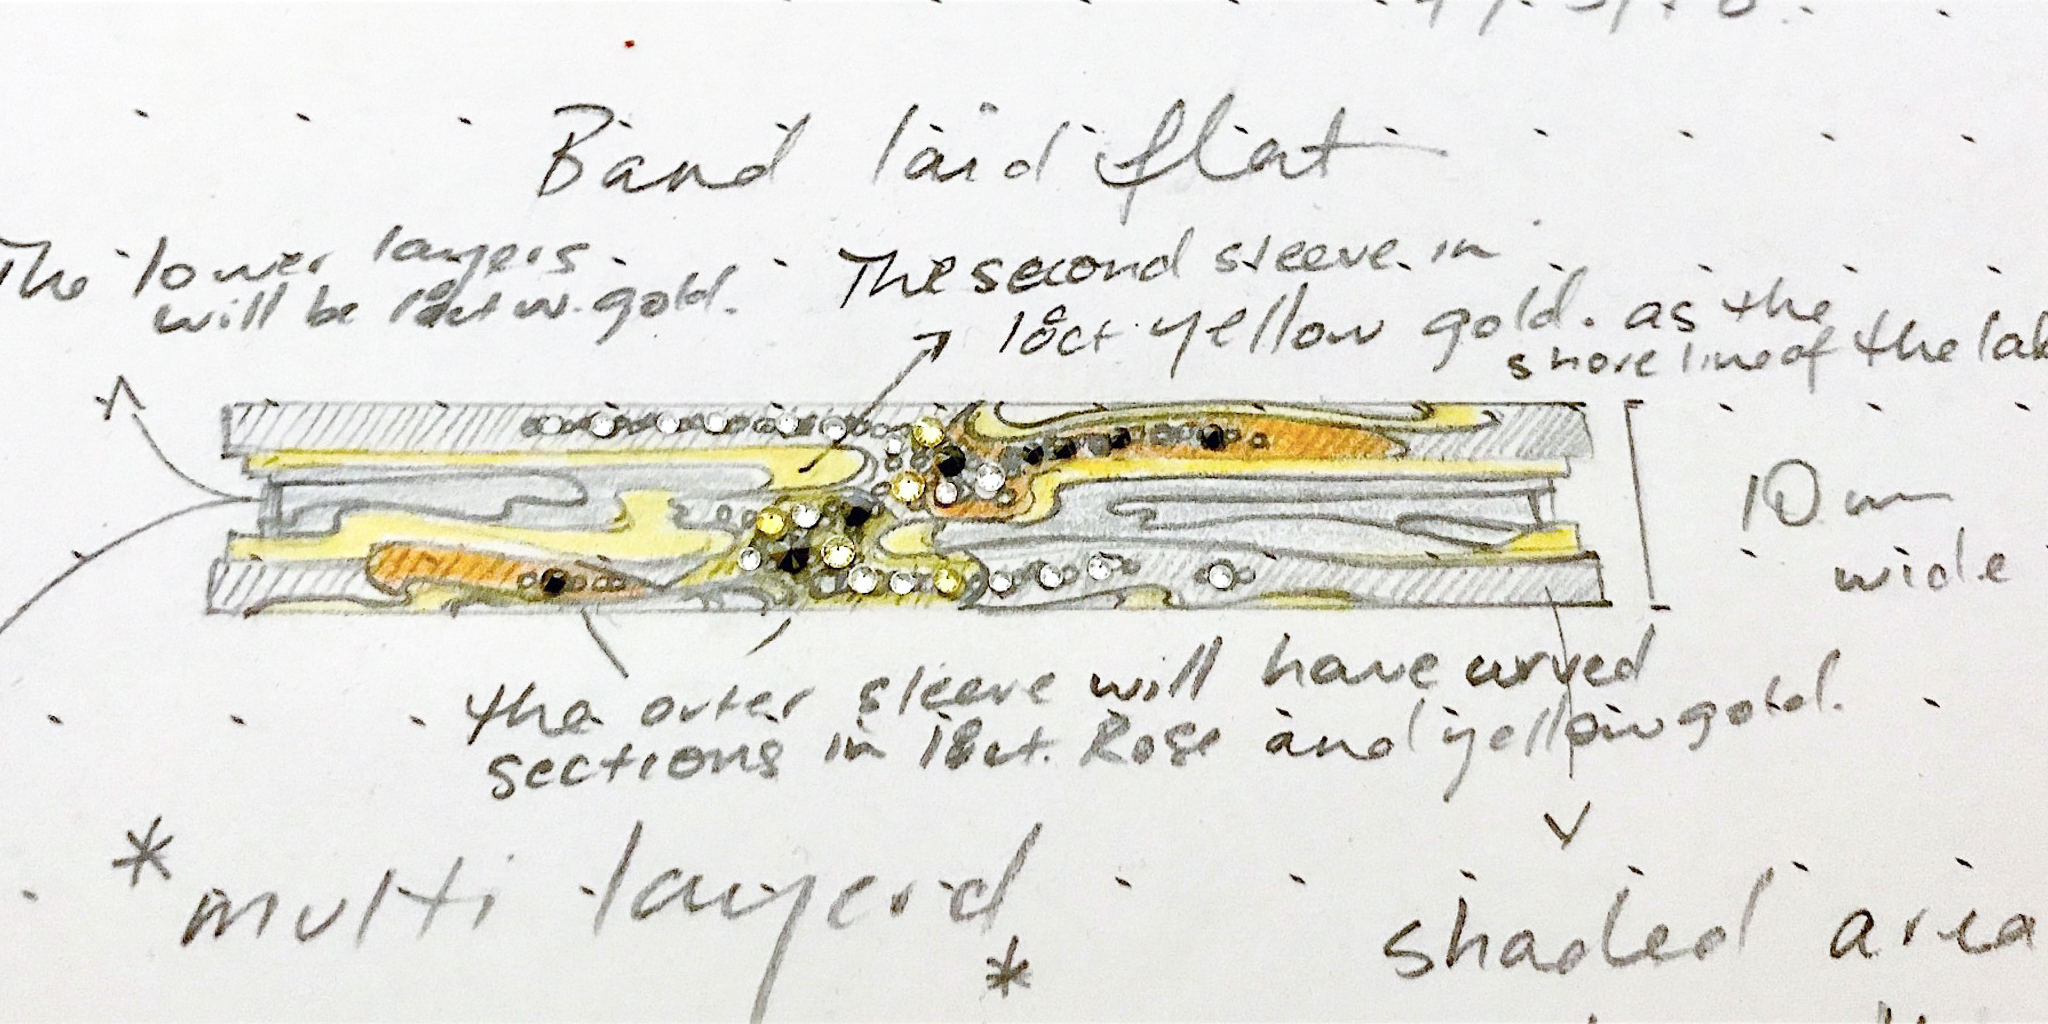 Band laid flat
The lower layers
will be 18ct w. gold.
The second sleeve in
18ct yellow gold. as the
shore line of the lak
10 m
wide
the outer sleeve will have
sections in 18ct. Rose and yellow gold.
* multi layerd *
shaded area